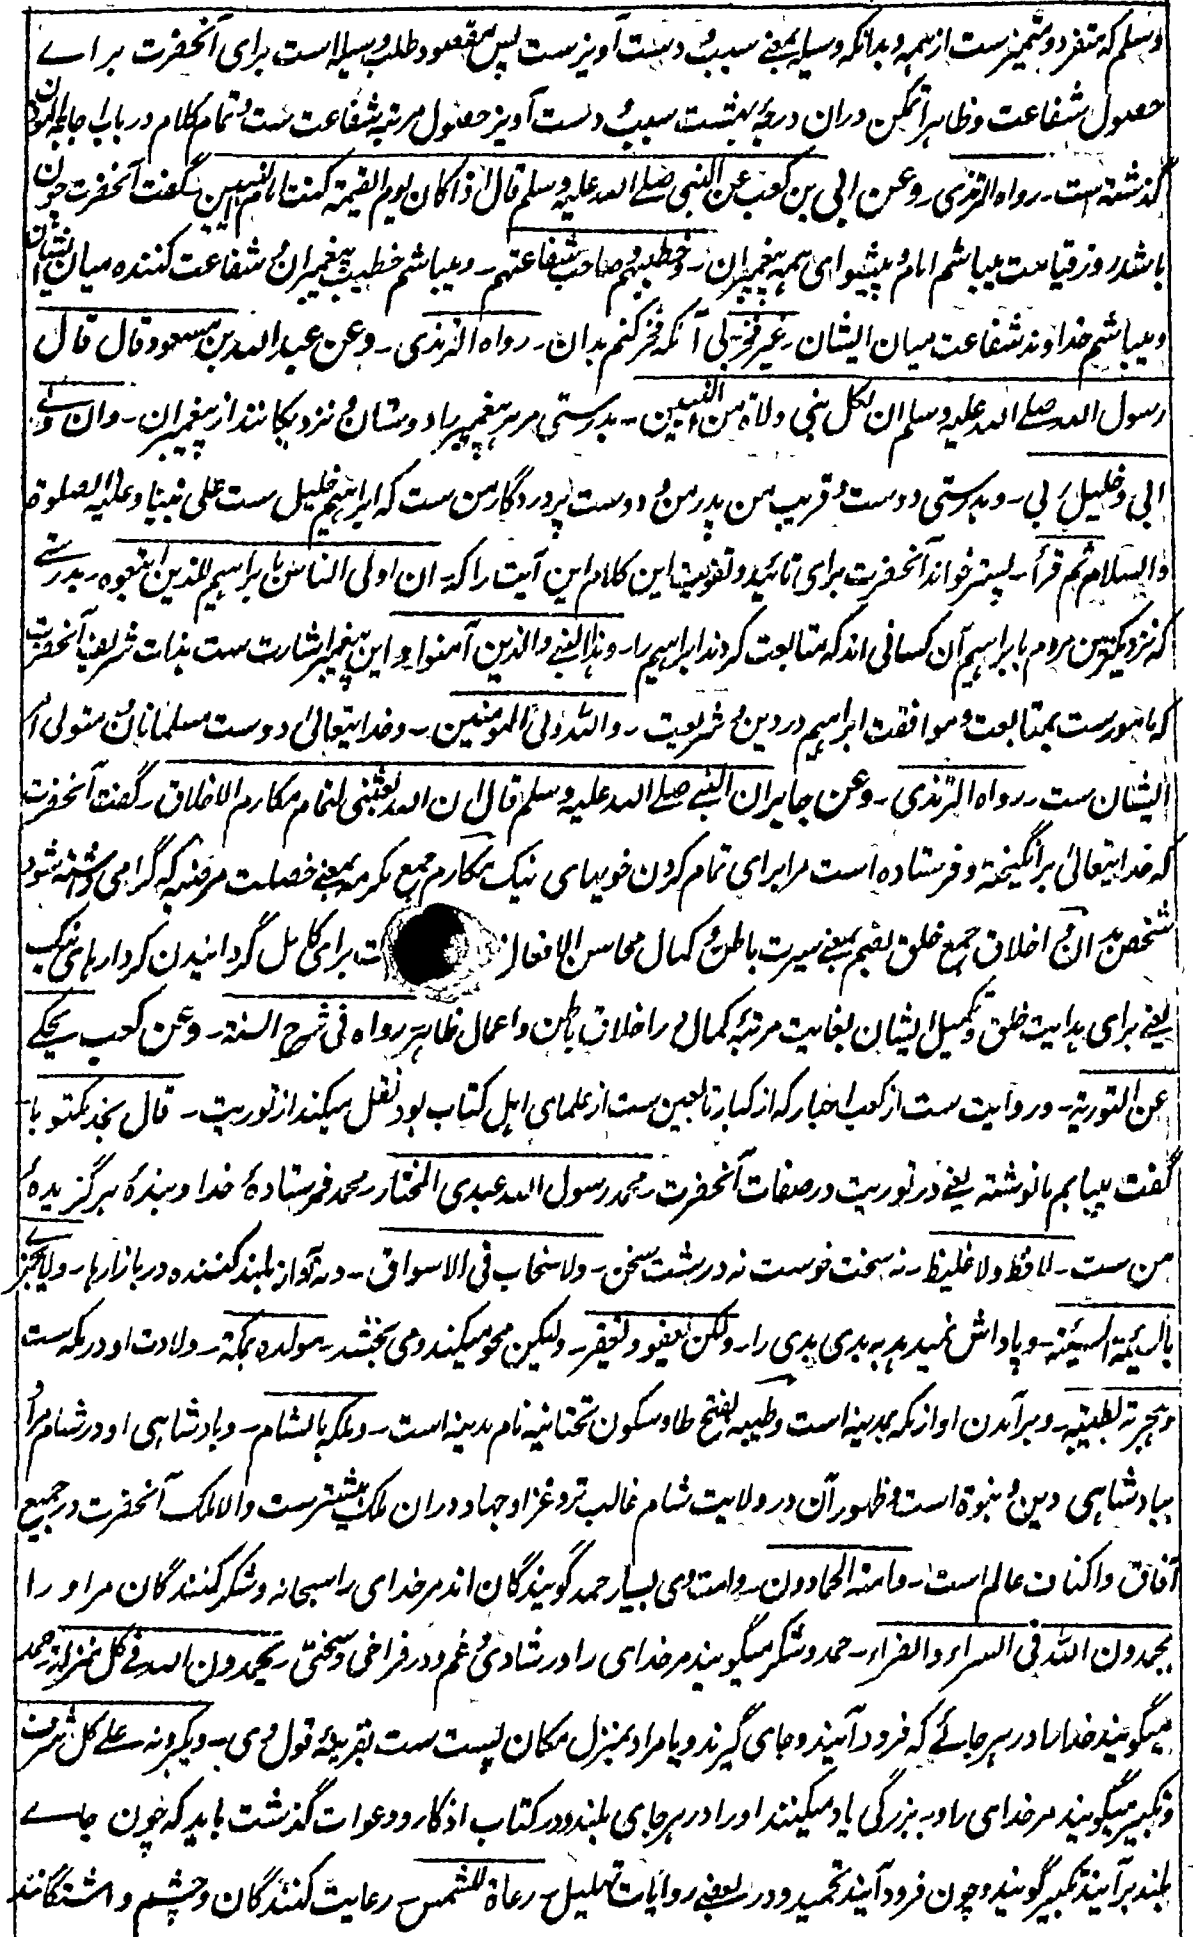 وسلم که متفرد و متمیزست از همه و بدانکه وسیله بمعنی سبب و دست آویزست پس مقصود طلب وسیله است برای آنحضرت براے
حصول شفاعت و ظاهرا تمکن دران درجهٔ بهشت سبب و دست آویز حصول مرتبهٔ شفاعت ست و تمام کلام در باب اجابة الموذن
گذشته است ـ رواه الترمذی ـ وعن ابی بن کعب عن النبی صلے الله علیه وسلم قال اذا کان یوم القیمة کنت امام النبیین ـ گفت آنحضرت چون
باشد روز قیامت میباشم امام و پیشوای همه پیغمبران ـ وخطیبهم وصاحب شفاعتهم ـ ومیباشم خطیب پیغمبران و شفاعت کننده میان ایشان
ومیباشم خداوند شفاعت میان ایشان ـ غیر فخر ـ بی آنکه فخر کنم بدان ـ رواه الترمذی ـ وعن عبد الله بن مسعود قال قال
رسول الله صلے الله علیه وسلم ان لکل نبی ولاة من النبیین ـ بدرستی مر هر پیغمبر را دوستان و نزدیکانند از پیغمبران ـ وان ولیے
ابی وخلیل ربی ـ وبدرستی دوست و قریب من پدر من و دوست پروردگار من ست که ابراهیم خلیل ست علی نبینا وعلیه الصلوة
والسلام ثم قرأ ـ پستر خواند آنحضرت برای تائید و تقویت این کلام این آیت را که ـ ان اولی الناس بابراهیم للذین اتبعوه ـ بدرستے
که نزدیکترین مردم بابراهیم آن کسانی اند که متابعت کردند ابراهیم را ـ وهذا النبی والذین آمنوا واین پیغمبر اشارت ست بذات شریف آنحضرت
که مامورست بمتابعت و موافقت ابراهیم در دین و شریعت ـ والله ولی المومنین ـ وخدایتعالی دوست مسلمانان و متولی امر
ایشان ست ـ رواه الترمذی ـ وعن جابر ان النبی صلے الله علیه وسلم قال ان الله بعثنی لتمام مکارم الاخلاق ـ گفت آنحضرت
که خدایتعالی برانگیخته و فرستاده است مرا برای تمام کردن خویهای نیک مکارم جمع مکرمه بمعنی خصلت مرضیه که گرامی داشته شود
شخص بدان و اخلاق جمع خلق بضم بمعنی سیرت باطن وکمال محاسن الافعال برای کامل گردانیدن کردارهای نیک
یعنے برای هدایت خلق و تکمیل ایشان بغایت مرتبهٔ کمال در اخلاق باطن و اعمال ظاهر رواه فی شرح السنة ـ وعن کعب یحکے
عن التوریة ـ وروایت ست از کعب احبار که از کبار تابعین ست از علمای اهل کتاب بود نقل میکند از توریت ـ قال نجد مکتوبا
گفت میابیم ما نوشته یعنے در توریت در صفات آنحضرت ـ محمد رسول الله عبدی المختار ـ محمد فرستادهٔ خدا وبندهٔ برگزیدهٔ
من ست ـ لا فظ ولا غلیظ ـ نه سخت خوست نه درشت سخن ـ ولا سخاب فی الاسواق ـ ونه آواز بلند کننده در بازارها ـ ولا یجزے
بالسیئة السیئة ـ وپاداش نمیدهد به بدی بدی را ـ ولکن یعفو ویغفر ـ ولیکن محو میکند ومی بخشد ـ مولده بمکة ـ ولادت او در مکه ست
وهجرته بطیبة ـ وبرآمدن او از مکه بمدینه است وطیبه بفتح طا وسکون تحتانیه نام مدینه است ـ وملکه بالشام ـ وبادشاهی او در شام مراد
ببادشاهی دین ونبوة است وظهور آن در ولایت شام غالب تر وغزا وجهاد دران ملک بیشترست والا ملک آنحضرت در جمیع
آفاق واکناف عالم است ـ وامته الحمادون ـ وامت وی بسیار حمد گویندگان اند مر خدای را سبحانه وشکر کنندگان مر او را
یحمدون الله فی السراء والضراء ـ حمد وشکر میگویند مر خدای را در شادی وغم ودر فراخی وسختی ـ یحمدون الله فی کل منزلة حمد
میگویند خدا را در هر جائے که فرود آیند وجای گیرند ویا مراد بمنزل مکان پست ست بقرینهٔ قول وی ـ ویکبرونه علے کل شرف
وتکبیر میگویند مر خدای را وبه بزرگی یاد میکنند او را در هر جای بلند ودر کتاب اذکار ودعوات گذشت باید که چون جاے
بلند برآیند تکبیر گویند وچون فرود آیند تحمید ودر بعضے روایات تهلیل ـ رعاة للشمس ـ رعایت کنندگان وچشم داشتگانند